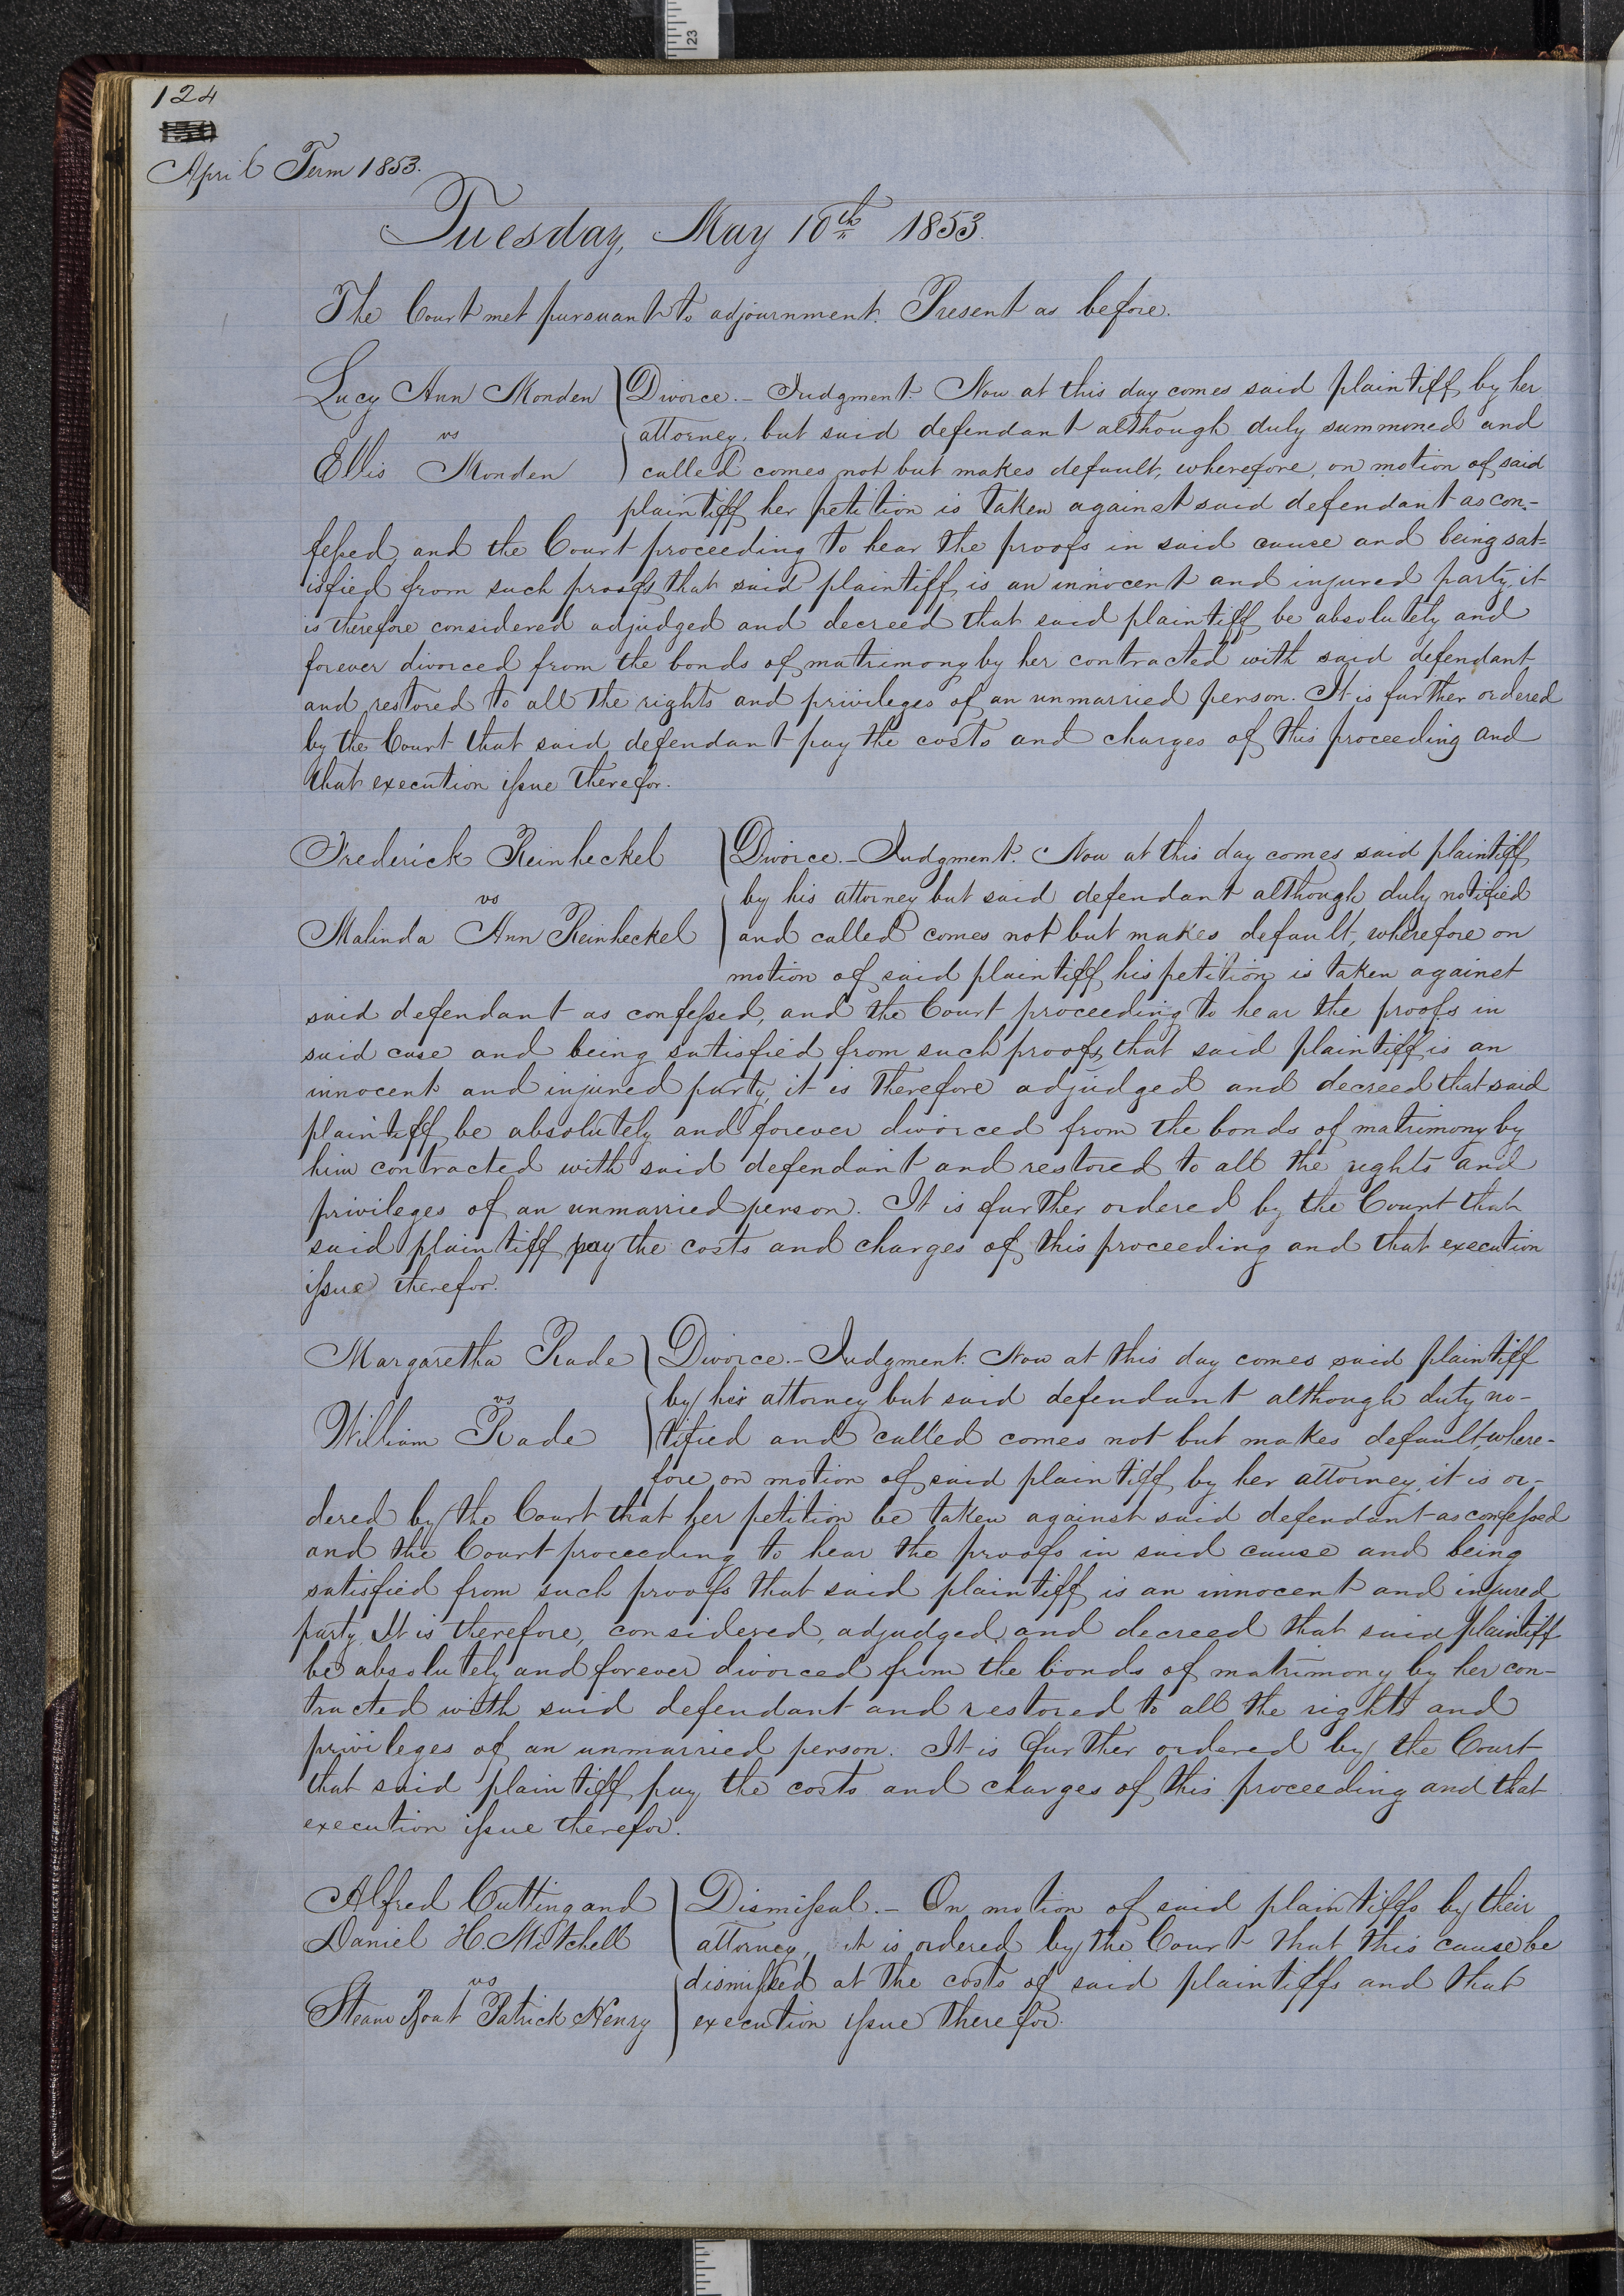 23
124
April Term 1853.
Tuesday, May 10th 1853.
The Court met pursuant to adjournment. Present as before.
Lucy Ann Monden Divorce.- Judgment. Now at this day comes said plaintiff by her
vs attorney, but said defendant although duly summoned and
Ellis Monden called comes not but makes default, wherefore, on motion of said
plaintiff her petition is taken against said defendant as con-
fessed, and the Court proceeding to hear the proofs in said cause and being sat=
isfied from such proofs that said plaintiff is an innocent and injured party, it
is therefore considered adjudged and decreed that said plaintiff be absolutely and
forever divorced from the bonds of matrimony by her contracted with said defendant
and restored to all the rights and privileges of an unmarried person. It is further ordered
by the Court that said defendant pay the costs and charges of this proceeding and
that execution issue therefor.
Frederick Reinheckel Divorce.- Judgment. Now at this day comes said plaintiff
vs by his attorney but said defendant although duly notified
Malinda Ann Reinheckel and called comes not but makes default, wherefore on
motion of said plaintiff his petition is taken against
said defendant as confessed, and the Court proceeding to hear the proofs in
said case and being satisfied from such proofs that said plaintiff is an
innocent and injured party, it is therefore adjudged and decreed that said
plaintiff be absolutely and forever divorced from the bonds of matrimony by
him contracted with said defendant and restored to all the rights and
privileges of an unmarried person. It is further ordered by the Court that
said plaintiff pay the costs and charges of this proceeding and that execution
issue therefor.
Margaretha Rade Divorce.- Judgment. Now at this day comes said plaintiff
vs by his attorney but said defendant although duty no-
William Rade tified and called comes not but makes default, where-
fore on motion of said plaintiff by her attorney, it is or-
dered by the Court that her petition be taken against said defendant as confessed
and the Court proceeding to hear the proofs in said cause and being
satisfied from such proofs that said plaintiff is an innocent and injured
party. It is therefore, considered, adjudged and decreed that said plaintiff
be absolutely and forever divorced from the bonds of matrimony by her con-
tracted with said defendant and restored to all the rights and
privileges of an unmarried person. It is further ordered by the Court
that said plaintiff pay the costs and charges of this proceeding and that
execution issue therefor.
Alfred Cutting and Dismissal.- On motion of said plaintiffs by their
Daniel H. Mitchell attorney, it is ordered by the Court that this cause be
vs dismissed at the costs of said plaintiffs and that
Steam Boat Patrick Henry execution issue therefor.